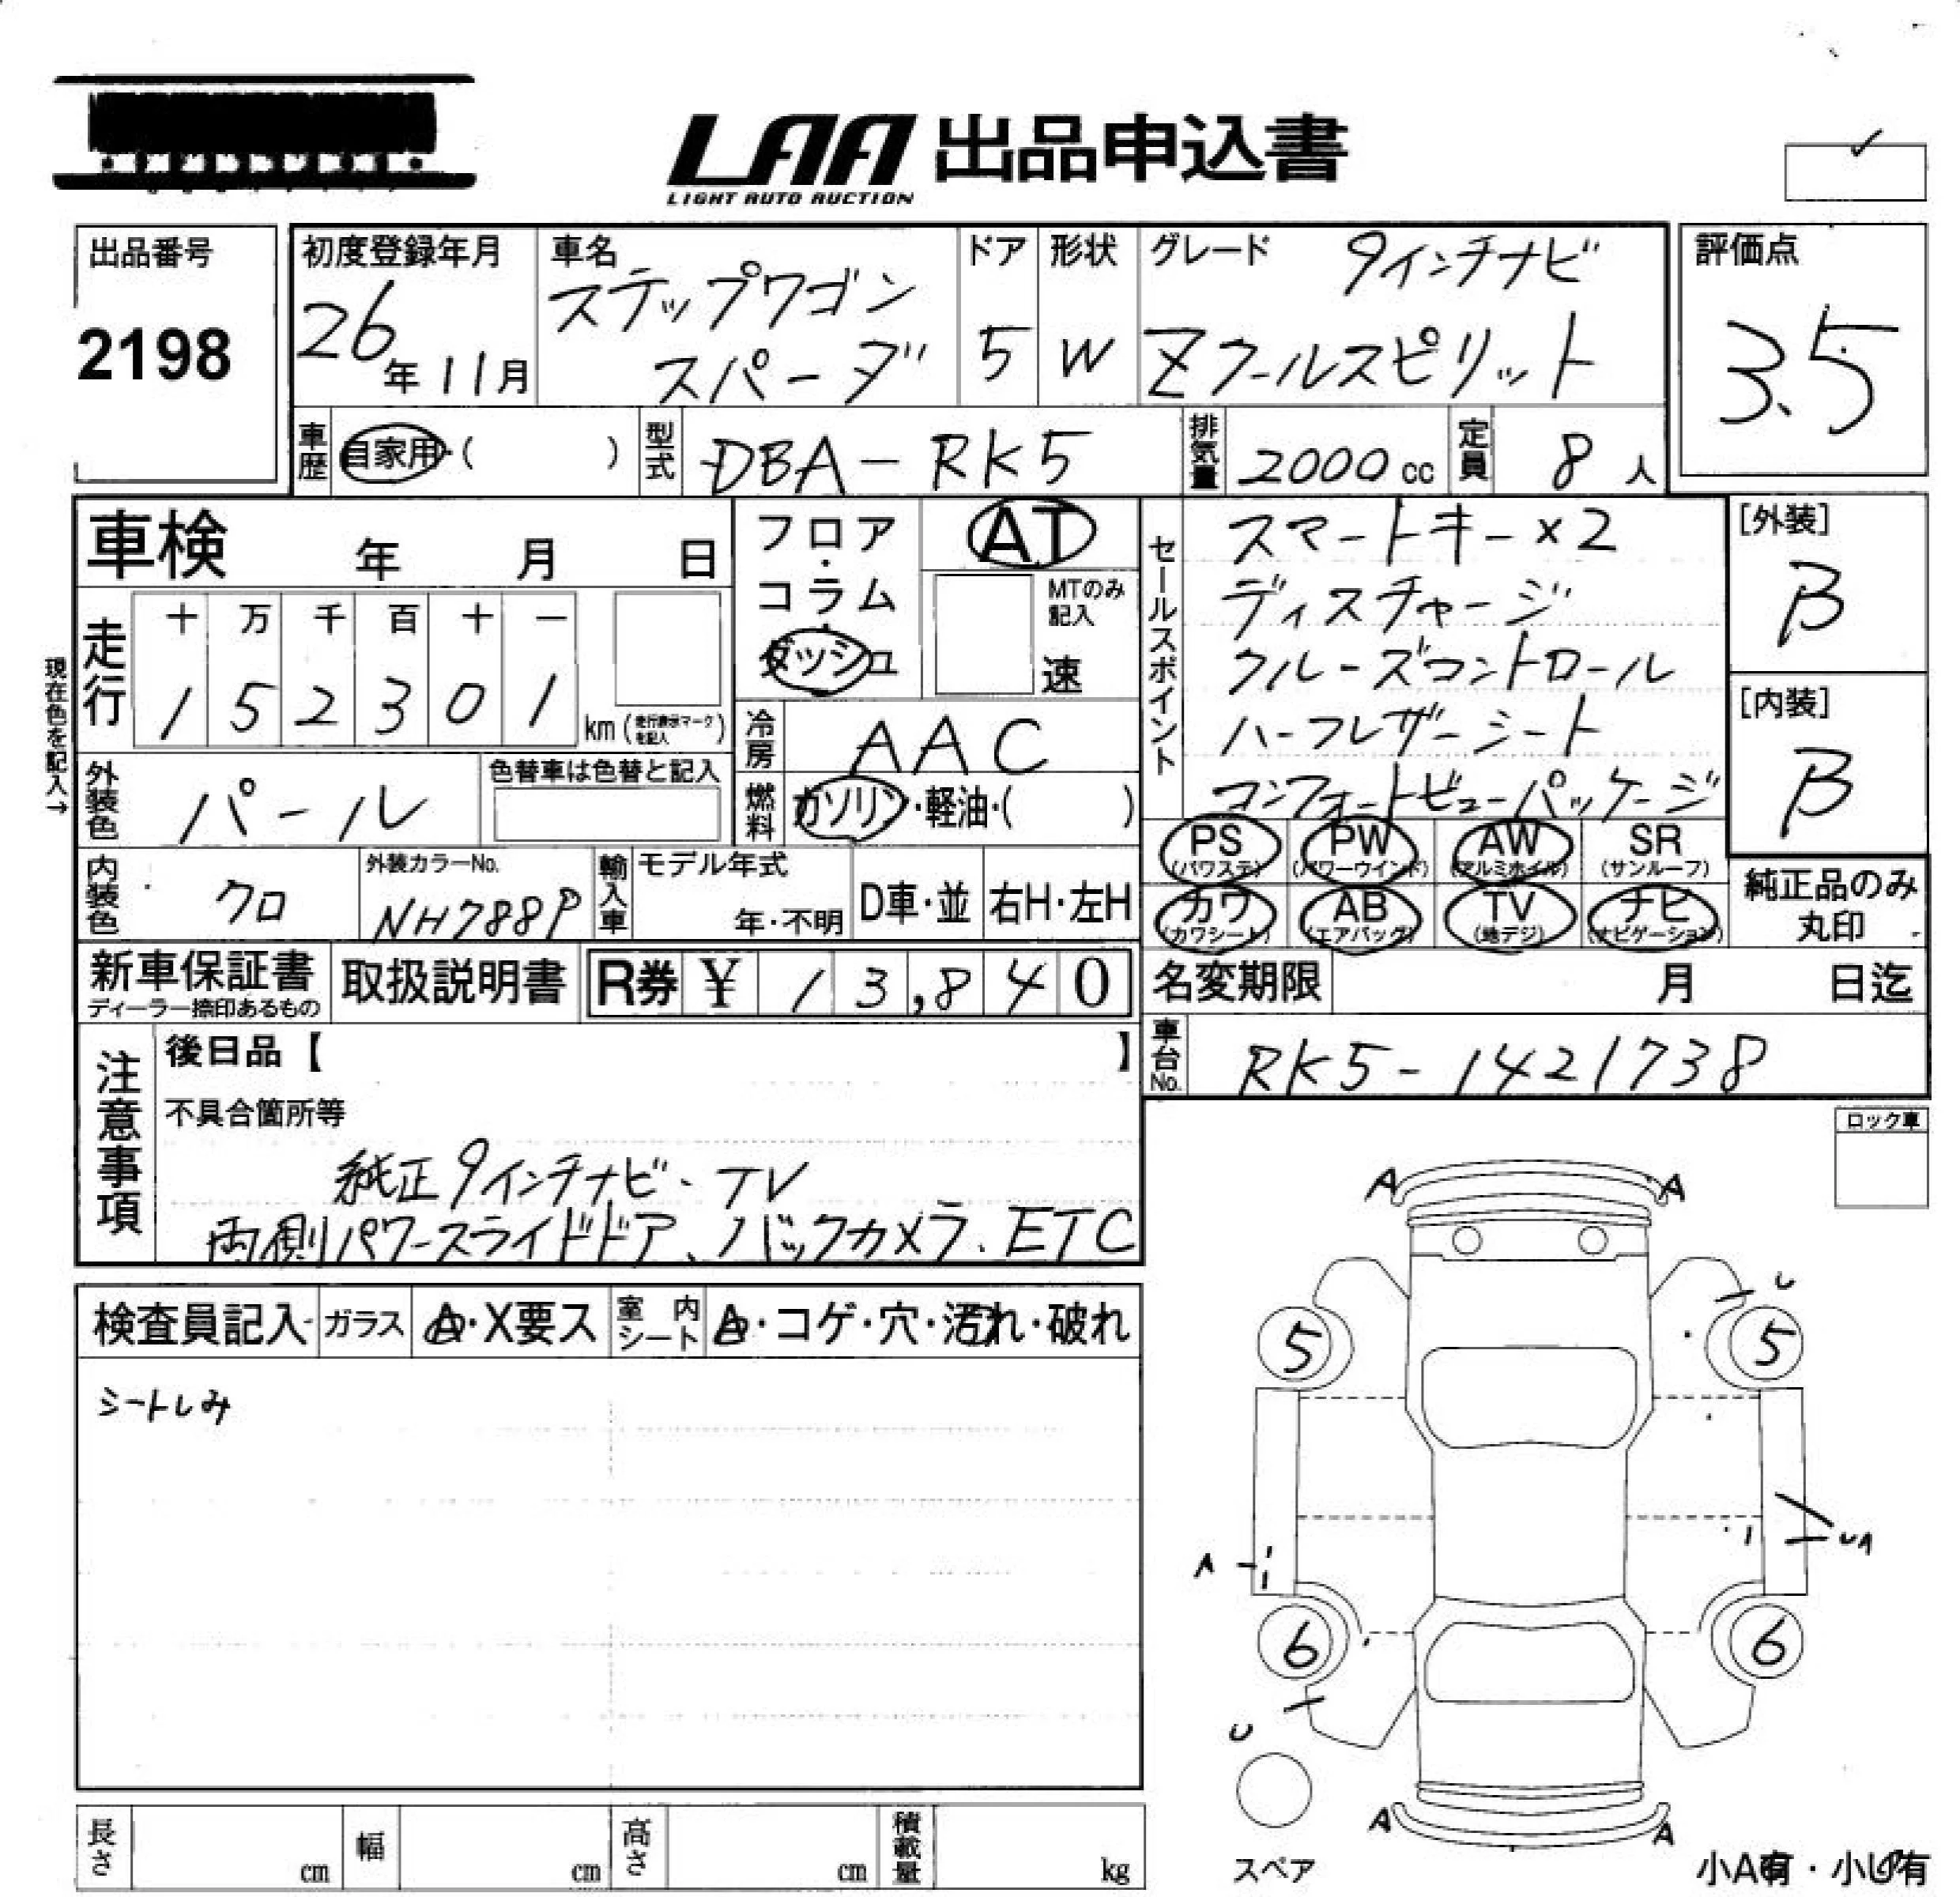 LAA 出品申込書
LIGHT AUTO AUCTION
出品番号
2198
初度登録年月
26年11月
車名
ステップワゴン
スパーダ
ドア
5
形状
W
グレード
9インチナビ
Zクールスピリット
評価点
3.5
車歴
自家用・( )
型式
DBA-RK5
排気量
2000cc
定員
8人
車検 年 月 日
フロア・
コラム・
ダッシュ
AT
MTのみ
記入
速
セールスポイント
スマートキー×2
ディスチャージ
クルーズコントロール
ハーフレザーシート
コンフォートビューパッケージ
[外装]
B
[内装]
B
現在色を記入→
走行
十 万 千 百 十 一
1 5 2 3 0 1
km(走行表示マークを記入)
冷房
AAC
燃料
ガソリン・軽油・( )
外装色
パール
色替車は色替と記入
PS
(パワステ)
PW
(パワーウインド)
AW
(アルミホイル)
SR
(サンルーフ)
カワ
(カワシート)
AB
(エアバッグ)
TV
(地デジ)
ナビ
(ナビゲーション)
純正品のみ
丸印
内装色
クロ
外装カラーNo.
NH788P
輸入車
モデル年式
年・不明
D車・並
右H・左H
新車保証書
ディーラー捺印あるもの
取扱説明書
R券 ¥ 13,840
名変期限 月 日迄
車台No.
RK5-1421738
注意事項
後日品【 】
不具合箇所等
純正9インチナビ、TV
両側パワースライドドア、バックカメラ、ETC
ロック車
検査員記入
ガラス
A・X要ス
室内
シート
A・コゲ・穴・汚れ・破れ
シートしみ
A A
U
5 5
A
UA
6 6
U
A A
スペア
小A有・小U有
長さ cm
幅 cm
高さ cm
積載量 kg